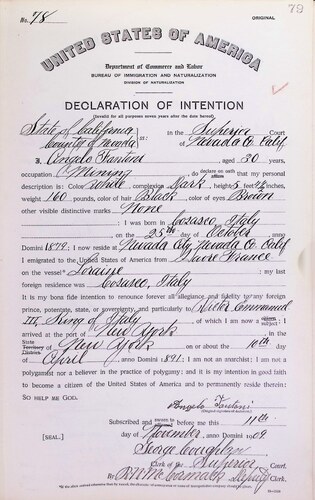 No. 78
ORIGINAL
79
UNITED STATES OF AMERICA
Department of Commerce and Labor
BUREAU OF IMMIGRATION AND NATURALIZATION
DIVISION OF NATURALIZATION
DECLARATION OF INTENTION
(Invalid for all purposes seven years after the date hereof)
State of California
County of Nevada ss: In the Superior Court
of Nevada Co. Calif.
I, Angelo Fantoni, aged 30 years,
occupation Mining, do declare on oath that my personal
description is: Color White, complexion Dark, height 5 feet inches,
weight 160 pounds, color of hair Black, color of eyes Brown
other visible distinctive marks None
I was born in Italy
on the 25th day of October, anno
Domini 1879; I now reside at Nevada City Nevada Co. Calif
I emigrated to the United States of America from Havre France
on the vessel Loraine; my last
foreign residence was Italy
It is my bona fide intention to renounce forever all allegiance and fidelity to any foreign
prince, potentate, state, or sovereignty, and particularly to Victor Emmanuel
III, King of Italy, of which I am now a subject; I
arrived at the port of New York, in the
State Territory District of New York on or about the 10th day
of April, anno Domini 1891; I am not an anarchist; I am not a
polygamist nor a believer in the practice of polygamy; and it is my intention in good faith
to become a citizen of the United States of America and to permanently reside therein:
SO HELP ME GOD.
Angelo Fantoni
Subscribed and sworn to before me this 11th
[SEAL.] day of November, anno Domini 1909
George Coughlin
Clerk of the Superior Court.
By McCormack, Deputy Clerk.